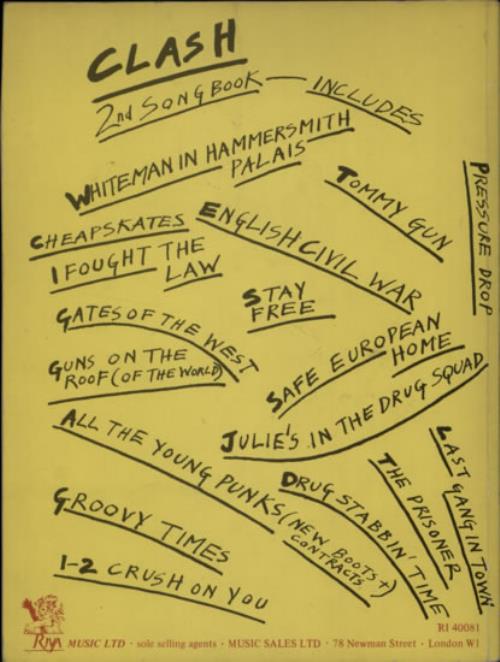 CLASH
2nd SONGBOOK — INCLUDES
WHITEMAN IN HAMMERSMITH
PALAIS
TOMMY GUN
PRESSURE DROP
CHEAPSKATES
ENGLISH CIVIL WAR
I FOUGHT THE
LAW
STAY
FREE
GATES OF THE WEST
SAFE EUROPEAN
HOME
GUNS ON THE
ROOF (OF THE WORLD)
JULIE'S IN THE DRUG SQUAD
ALL THE YOUNG PUNKS (NEW BOOTS +
CONTRACTS)
DRUG STABBIN' TIME
THE PRISONER
LAST GANG IN TOWN
GROOVY TIMES
1-2 CRUSH ON YOU
RI 40081
RIVA MUSIC LTD · sole selling agents · MUSIC SALES LTD · 78 Newman Street · London W1